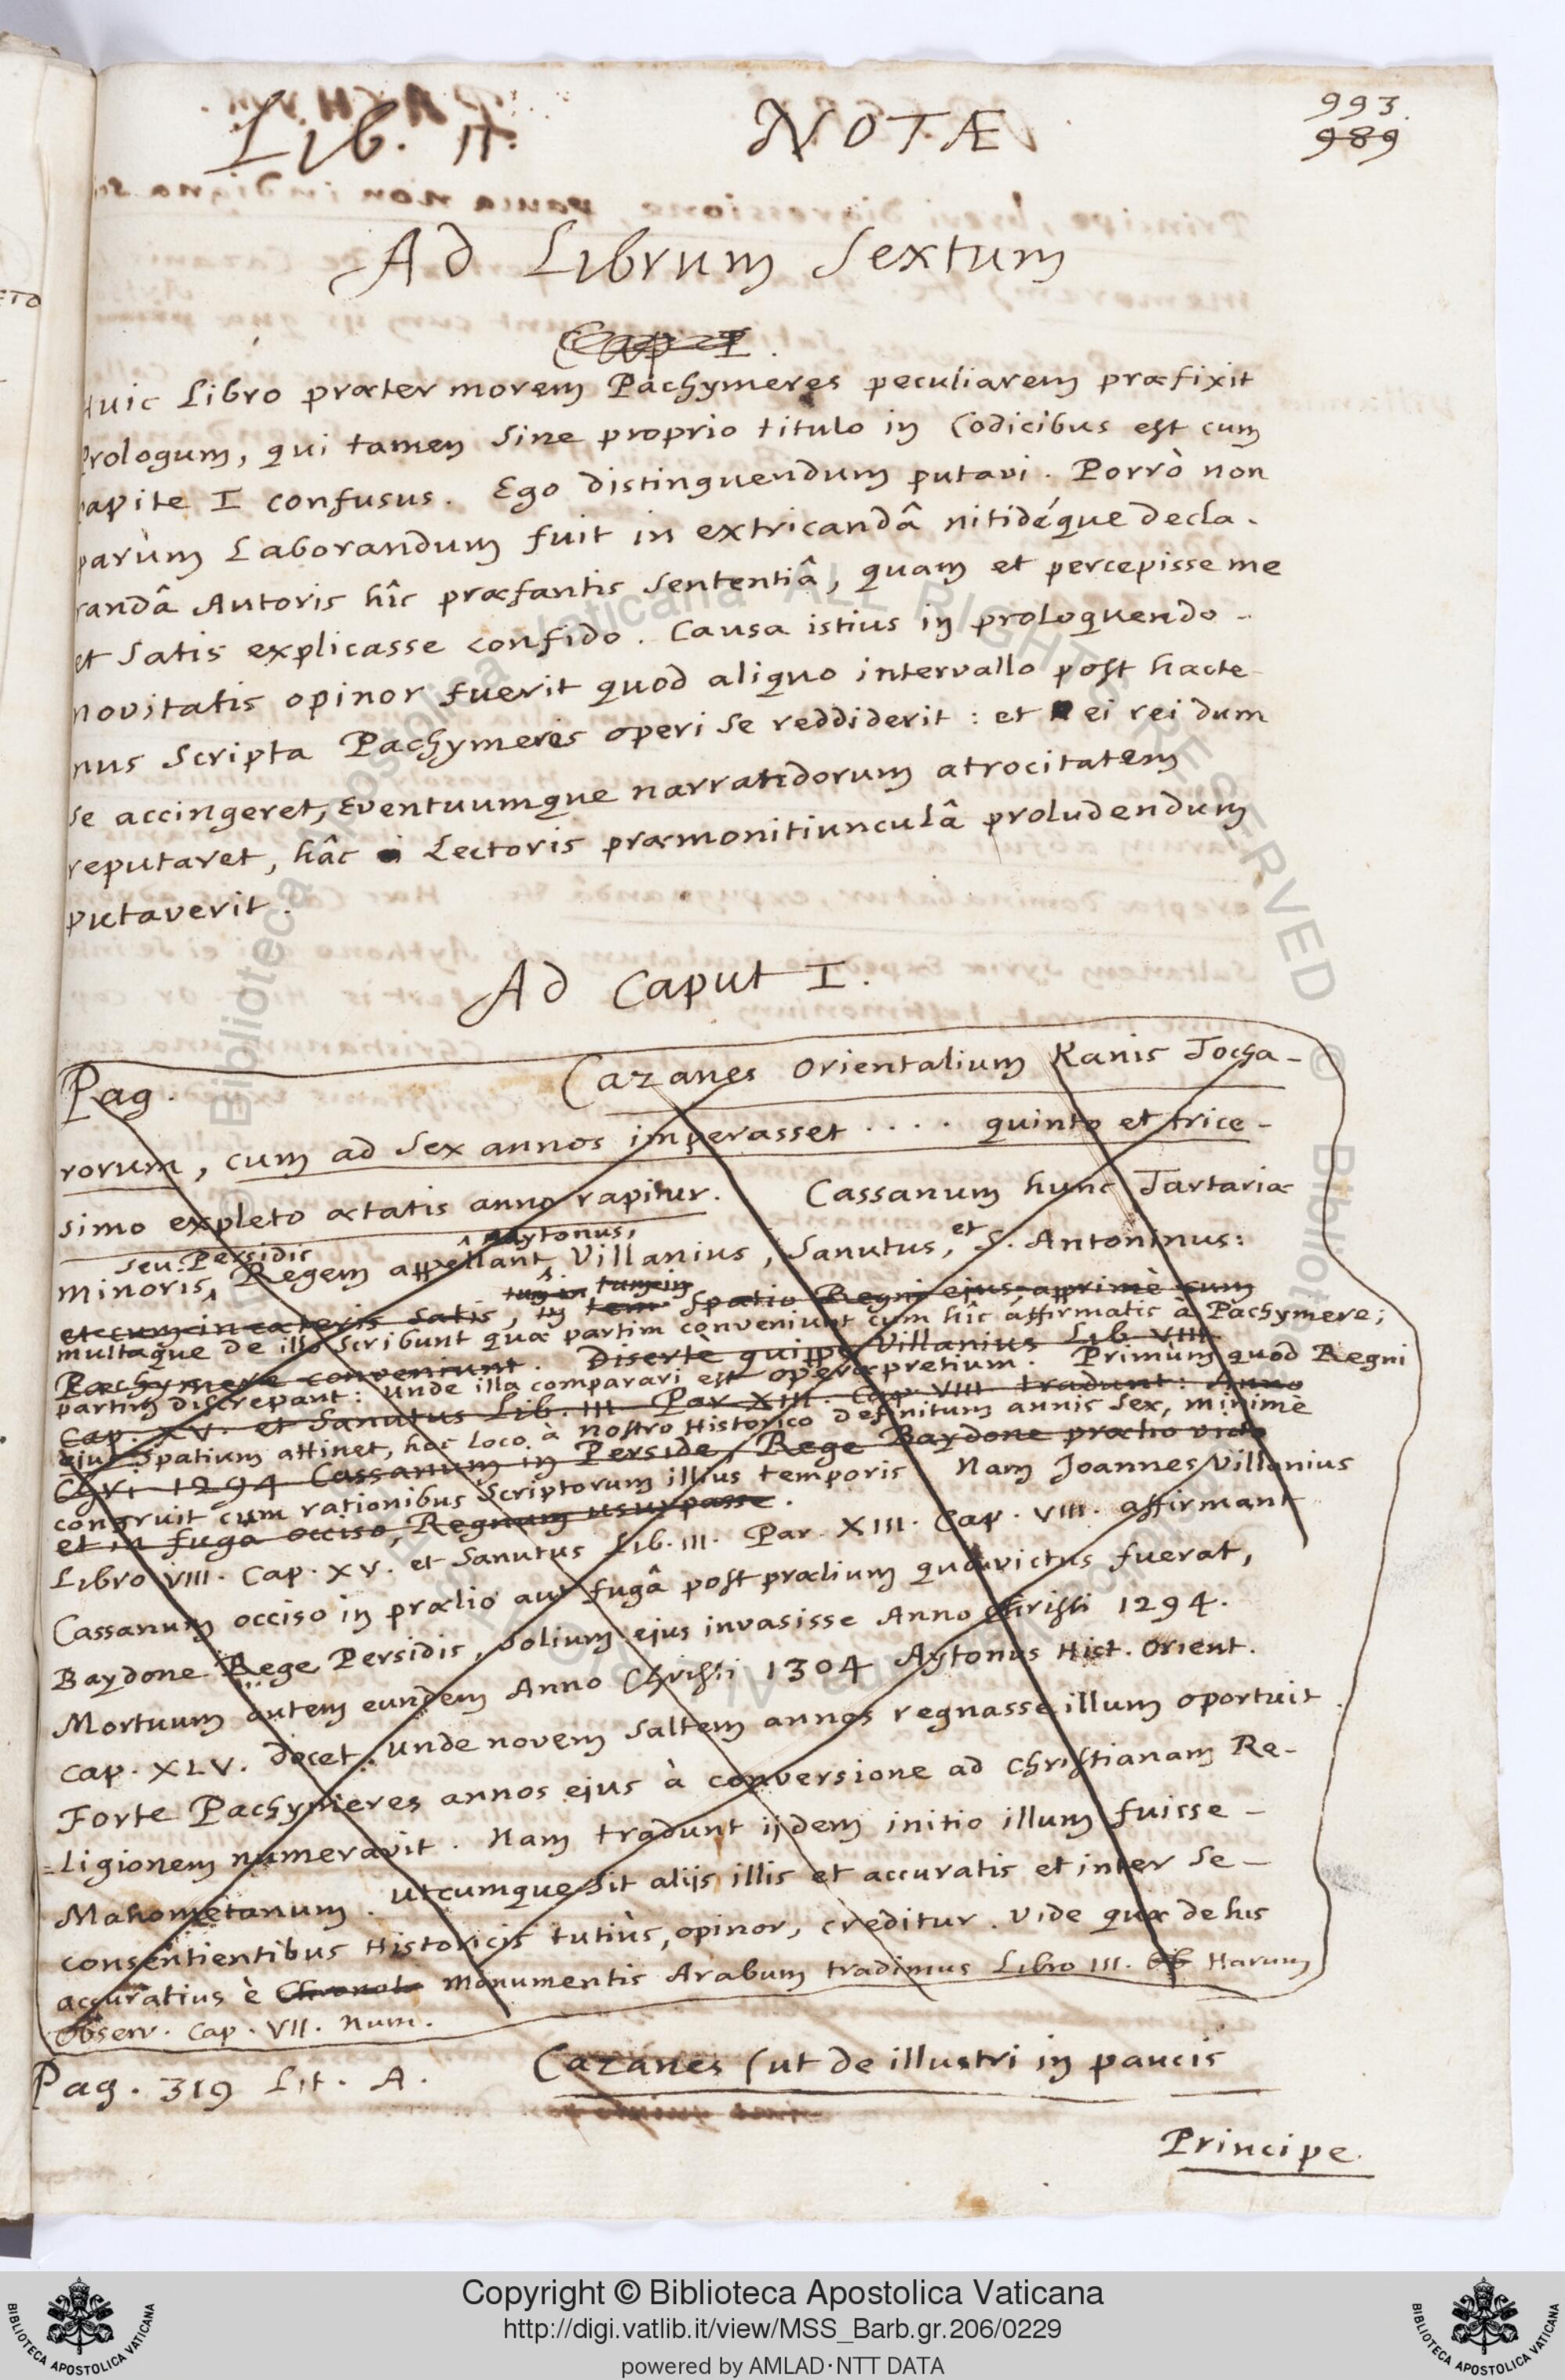 Lib. II.
NOTÆ
993.
989
Ad Librum Sextum
Cap I.
Huic Libro præter morem Pachymeres peculiarem præfixit
Prologum, qui tamen sine proprio titulo in Codicibus est cum
capite I confusus. Ego distinguendum putavi. Porrò non
parùm Laborandum fuit in extricandâ nitidéque decla-
randâ Autoris hîc præfantis sententiâ, quam et percepisse me
et satis explicasse confido. Causa istius in proloquendo
novitatis opinor fuerit quod aliquo intervallo post hacte-
nus scripta Pachymeres operi se reddiderit: et ei rei dum
se accingeret, Eventuumque narrandorum atrocitatem
reputaret, hâc Lectoris præmonitiunculâ proludendum
putaverit.
Ad Caput I.
Pag. Cazanes Orientalium Kanis Tocha-
rorum, cum ad sex annos imperasset . . . . quinto et trice-
simo expleto ætatis anno rapitur. Cassanum hunc Tartariæ
seu Persidis Aytonus, et
minoris Regem appellant Villanius, Sanutus, S. Antoninus:
tum in tum in
et cum in cæteris satis, in tem spatio Regni ejus apprimè cum
multaque de illo scribunt quæ partim conveniunt cum hîc affirmatis à Pachymere;
Pachymere conveniunt. Disertè quippe Villanius Lib VIII.
partim discrepant: unde illa comparari est operæ pretium. Primùm quod Regni
Cap. XV. et Sanutus Lib. III. Par XIII. Cap. VIII tradunt: Anno
ejus spatium attinet, hoc loco à nostro Historico definitum annis sex, minimè
Chri 1294 Cassanum in Perside, Rege Baydone prælio victo
congruit cum rationibus Scriptorum illius temporis Nam Joannes Villanius
et in fugâ occiso, Regnum usurpasse.
Libro VIII. Cap. XV. et Sanutus Lib. III. Par. XIII. Cap. VIII. affirmant
Cassanum occiso in prælio aut fugâ post prælium quo victus fuerat,
Baydone Rege Persidis, solium ejus invasisse Anno Christi 1294.
Mortuum autem eundem Anno Christi 1304 Aytonus Hist. Orient.
Cap. XLV. docet. Unde novem saltem annos regnasse illum oportuit.
Forte Pachymeres annos ejus à conversione ad Christianam Re-
=ligionem numeravit. Nam tradunt ijdem initio illum fuisse
Mahometanum. Utcumque sit alijs illis et accuratis et inter se
consentientibus Historicis tutiùs, opinor, creditur. Vide quæ de his
accuratius è Chronol. Monumentis Arabum tradimus Libro III. Ob Harum
Observ. Cap. VII. Num.
Pag. 319 Lit. A. Cazanes (ut de illustri in paucis
Principe.
Copyright © Biblioteca Apostolica Vaticana
http://digi.vatlib.it/view/MSS_Barb.gr.206/0229
powered by AMLAD·NTT DATA
BIBLIOTECA APOSTOLICA VATICANA
BIBLIOTECA APOSTOLICA VATICANA